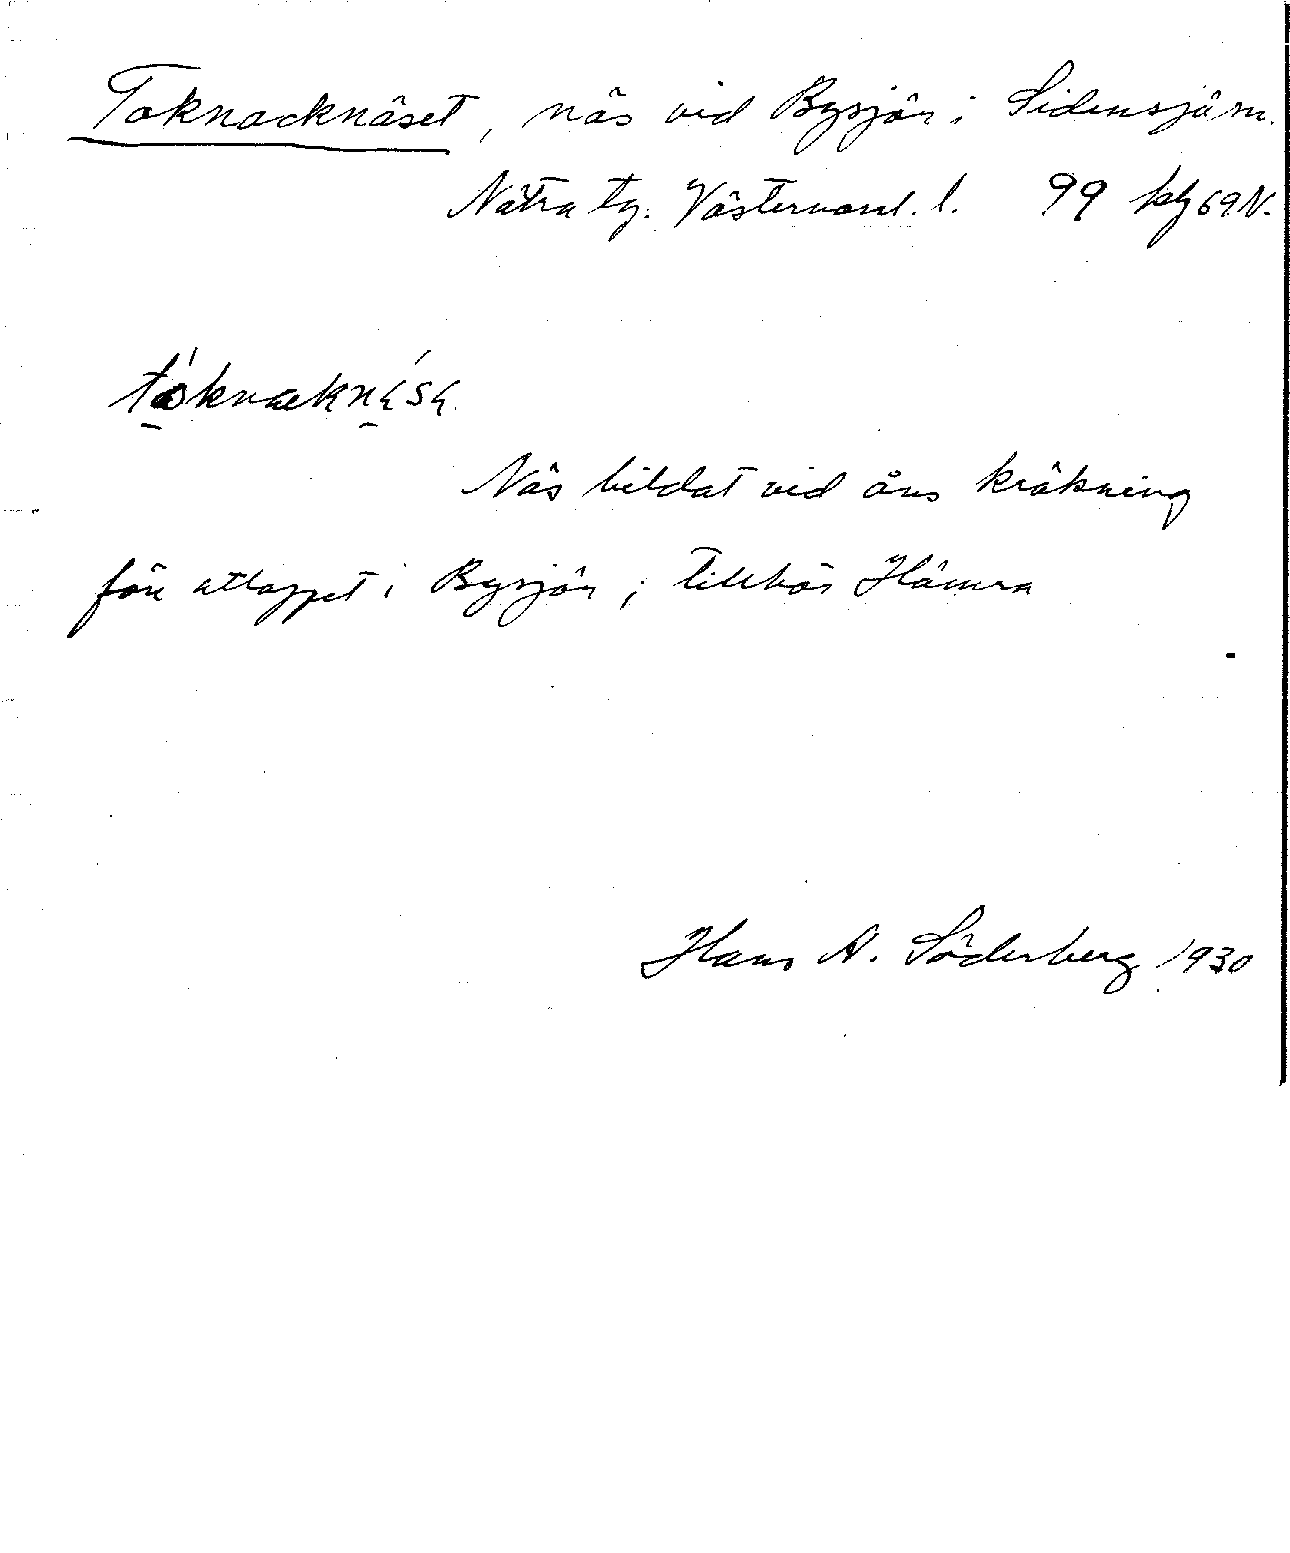 Toknacknäset, näs vid Bysjön i Sidensjö sn.
Nätra tg. Västernorrl. l. 99 kbl 69 N.
Näs bildat vid åns krökning
före utloppet i Bysjön; tillhör Hämra
Hans A. Söderberg 1930